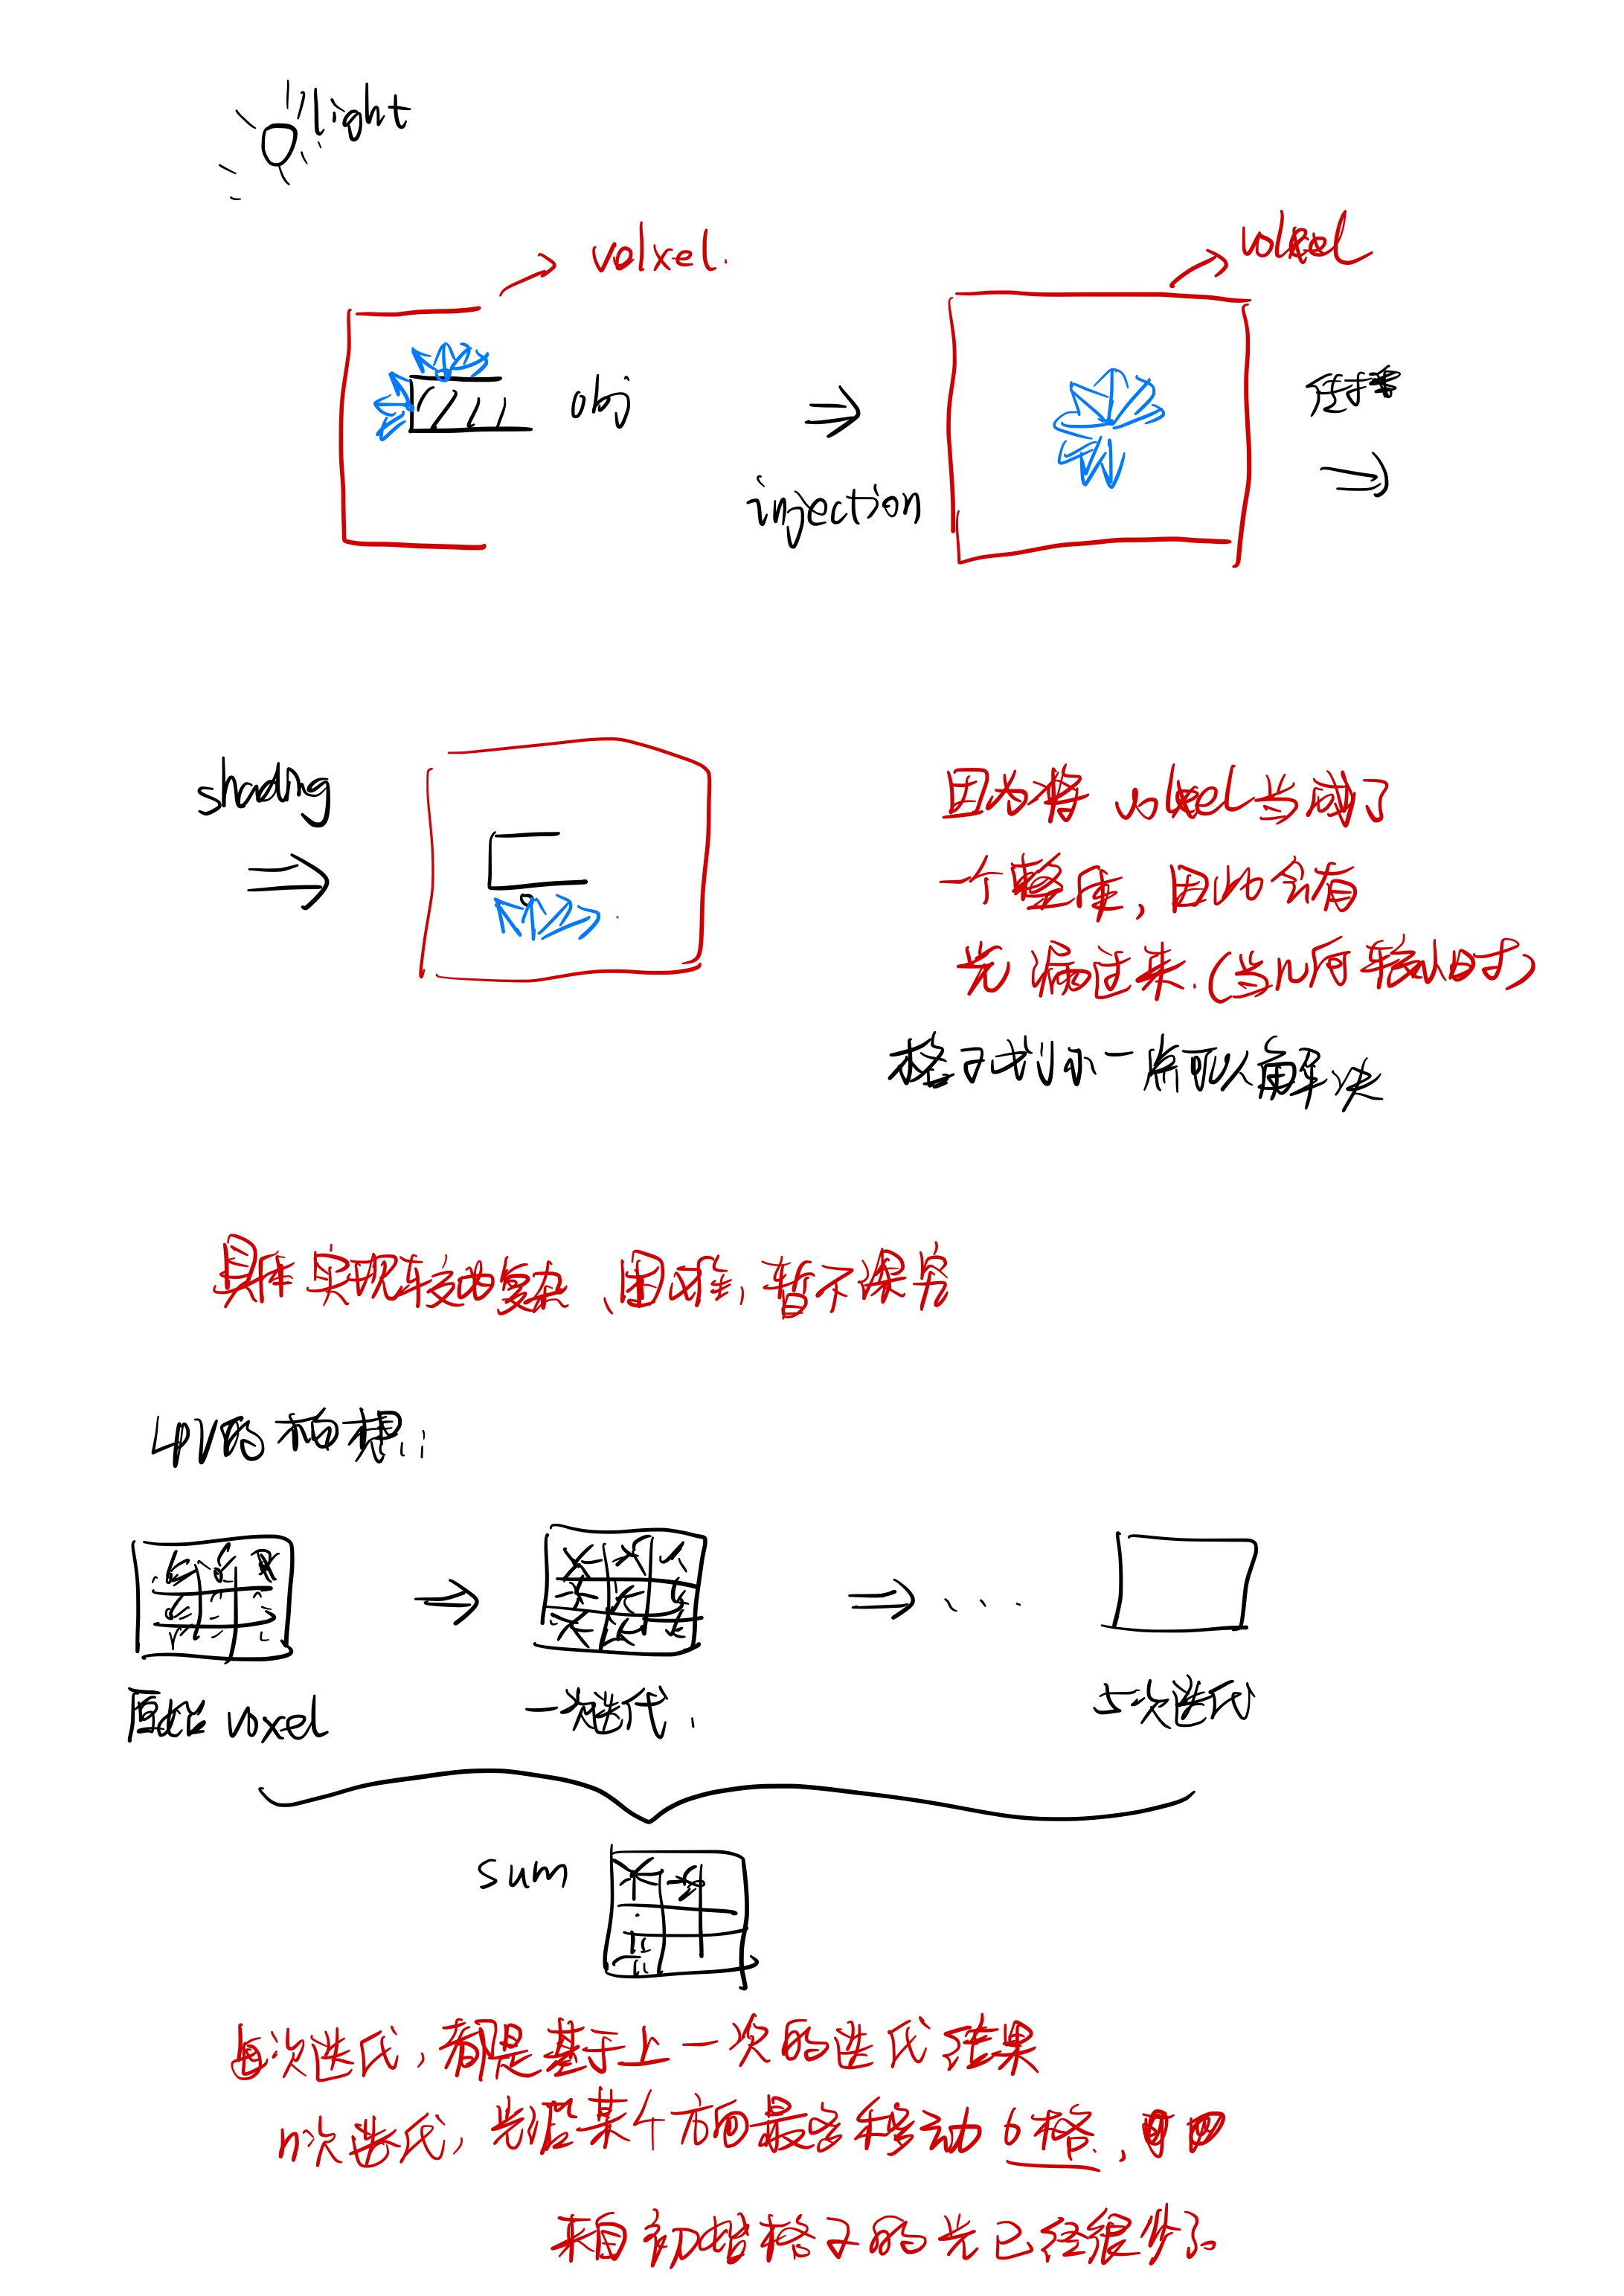 light
volxel.
volxel
obj
injection
传播
shading
因为将 volxel当成了
一个整体，因此会有
光漏过来.(当几何较小时)
格子划小一点可以解决
具体实现较为复杂、困难，暂不深究
LPV的构想：
原始 voxel
一次迭代.
...
五次迭代
sum
每次迭代，都是基于上一次的迭代结果
n次迭代，光沿某个方向最多移动 n格，
来自初始格子的光已经很少了。